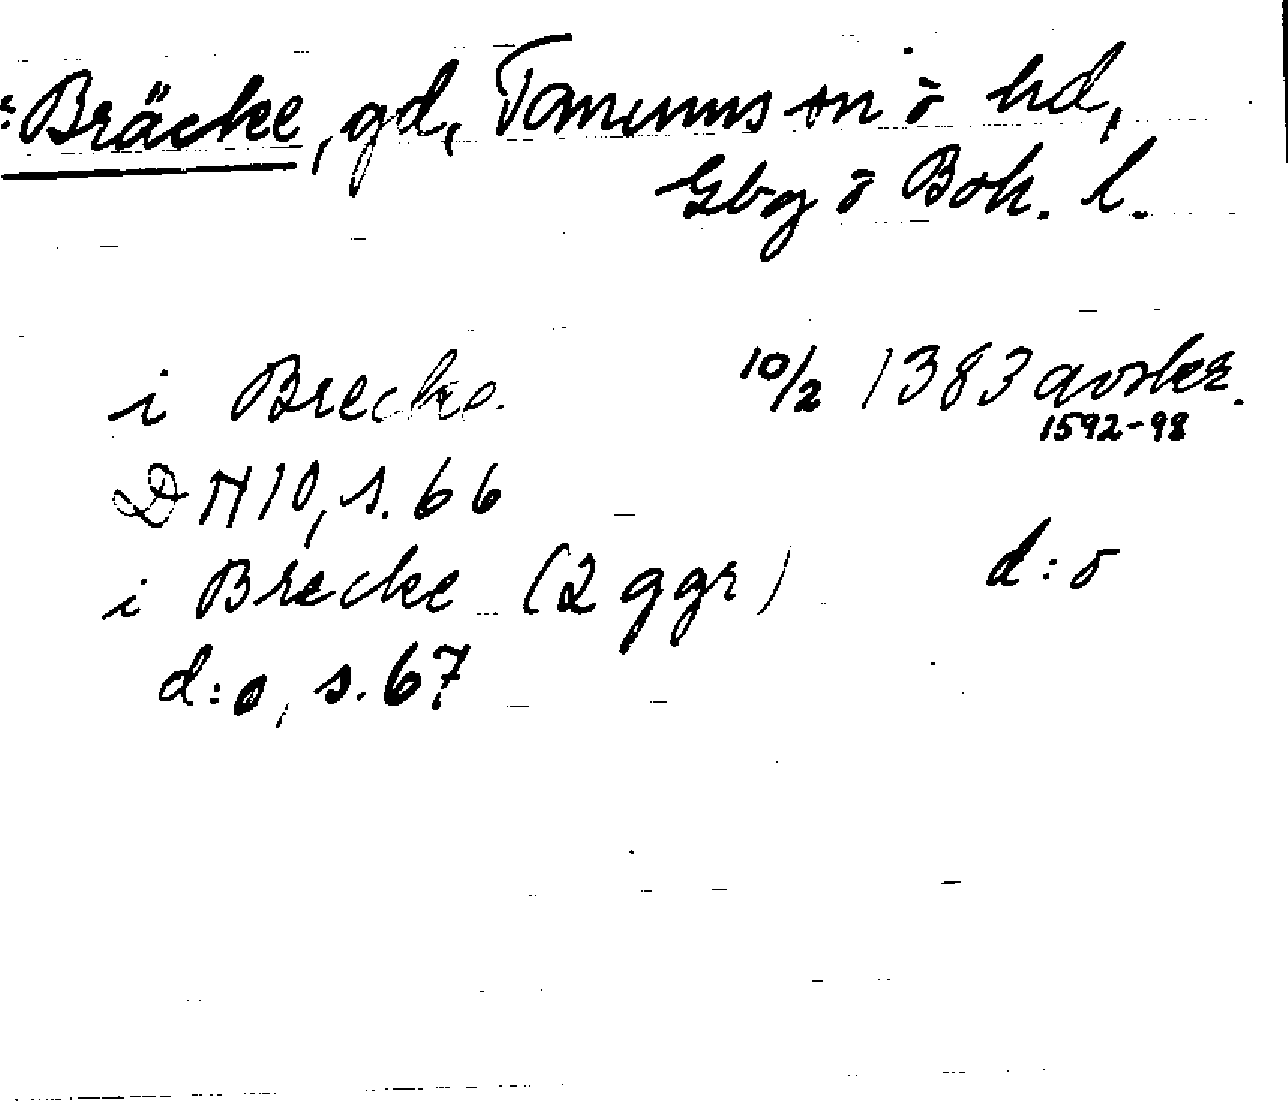 : Bräcke, gd, Tanums sn o hd,
Gbg o Boh. l.
i Brecke 10/2 1383 avskr.
1592-98
DN 10, s. 66
i Brecke (2 ggr) d:o
d:o, s. 67